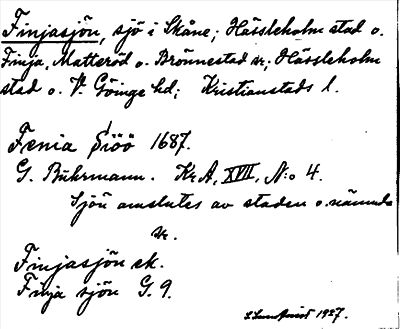 Finjasjön, sjö i Skåne; Hässleholm stad o.
Finja, Matteröd o. Brönnestad sr; Hässleholm
stad o. V. Göinge hd; Kristianstads l.
Fænia Siöö 1687.
G. Buhrmann. Kr A, XVII, N:o 4.
Sjön omslutes av staden o. nämnda
sr.
Finjasjön ek.
Finja sjön G. 9.
1927.